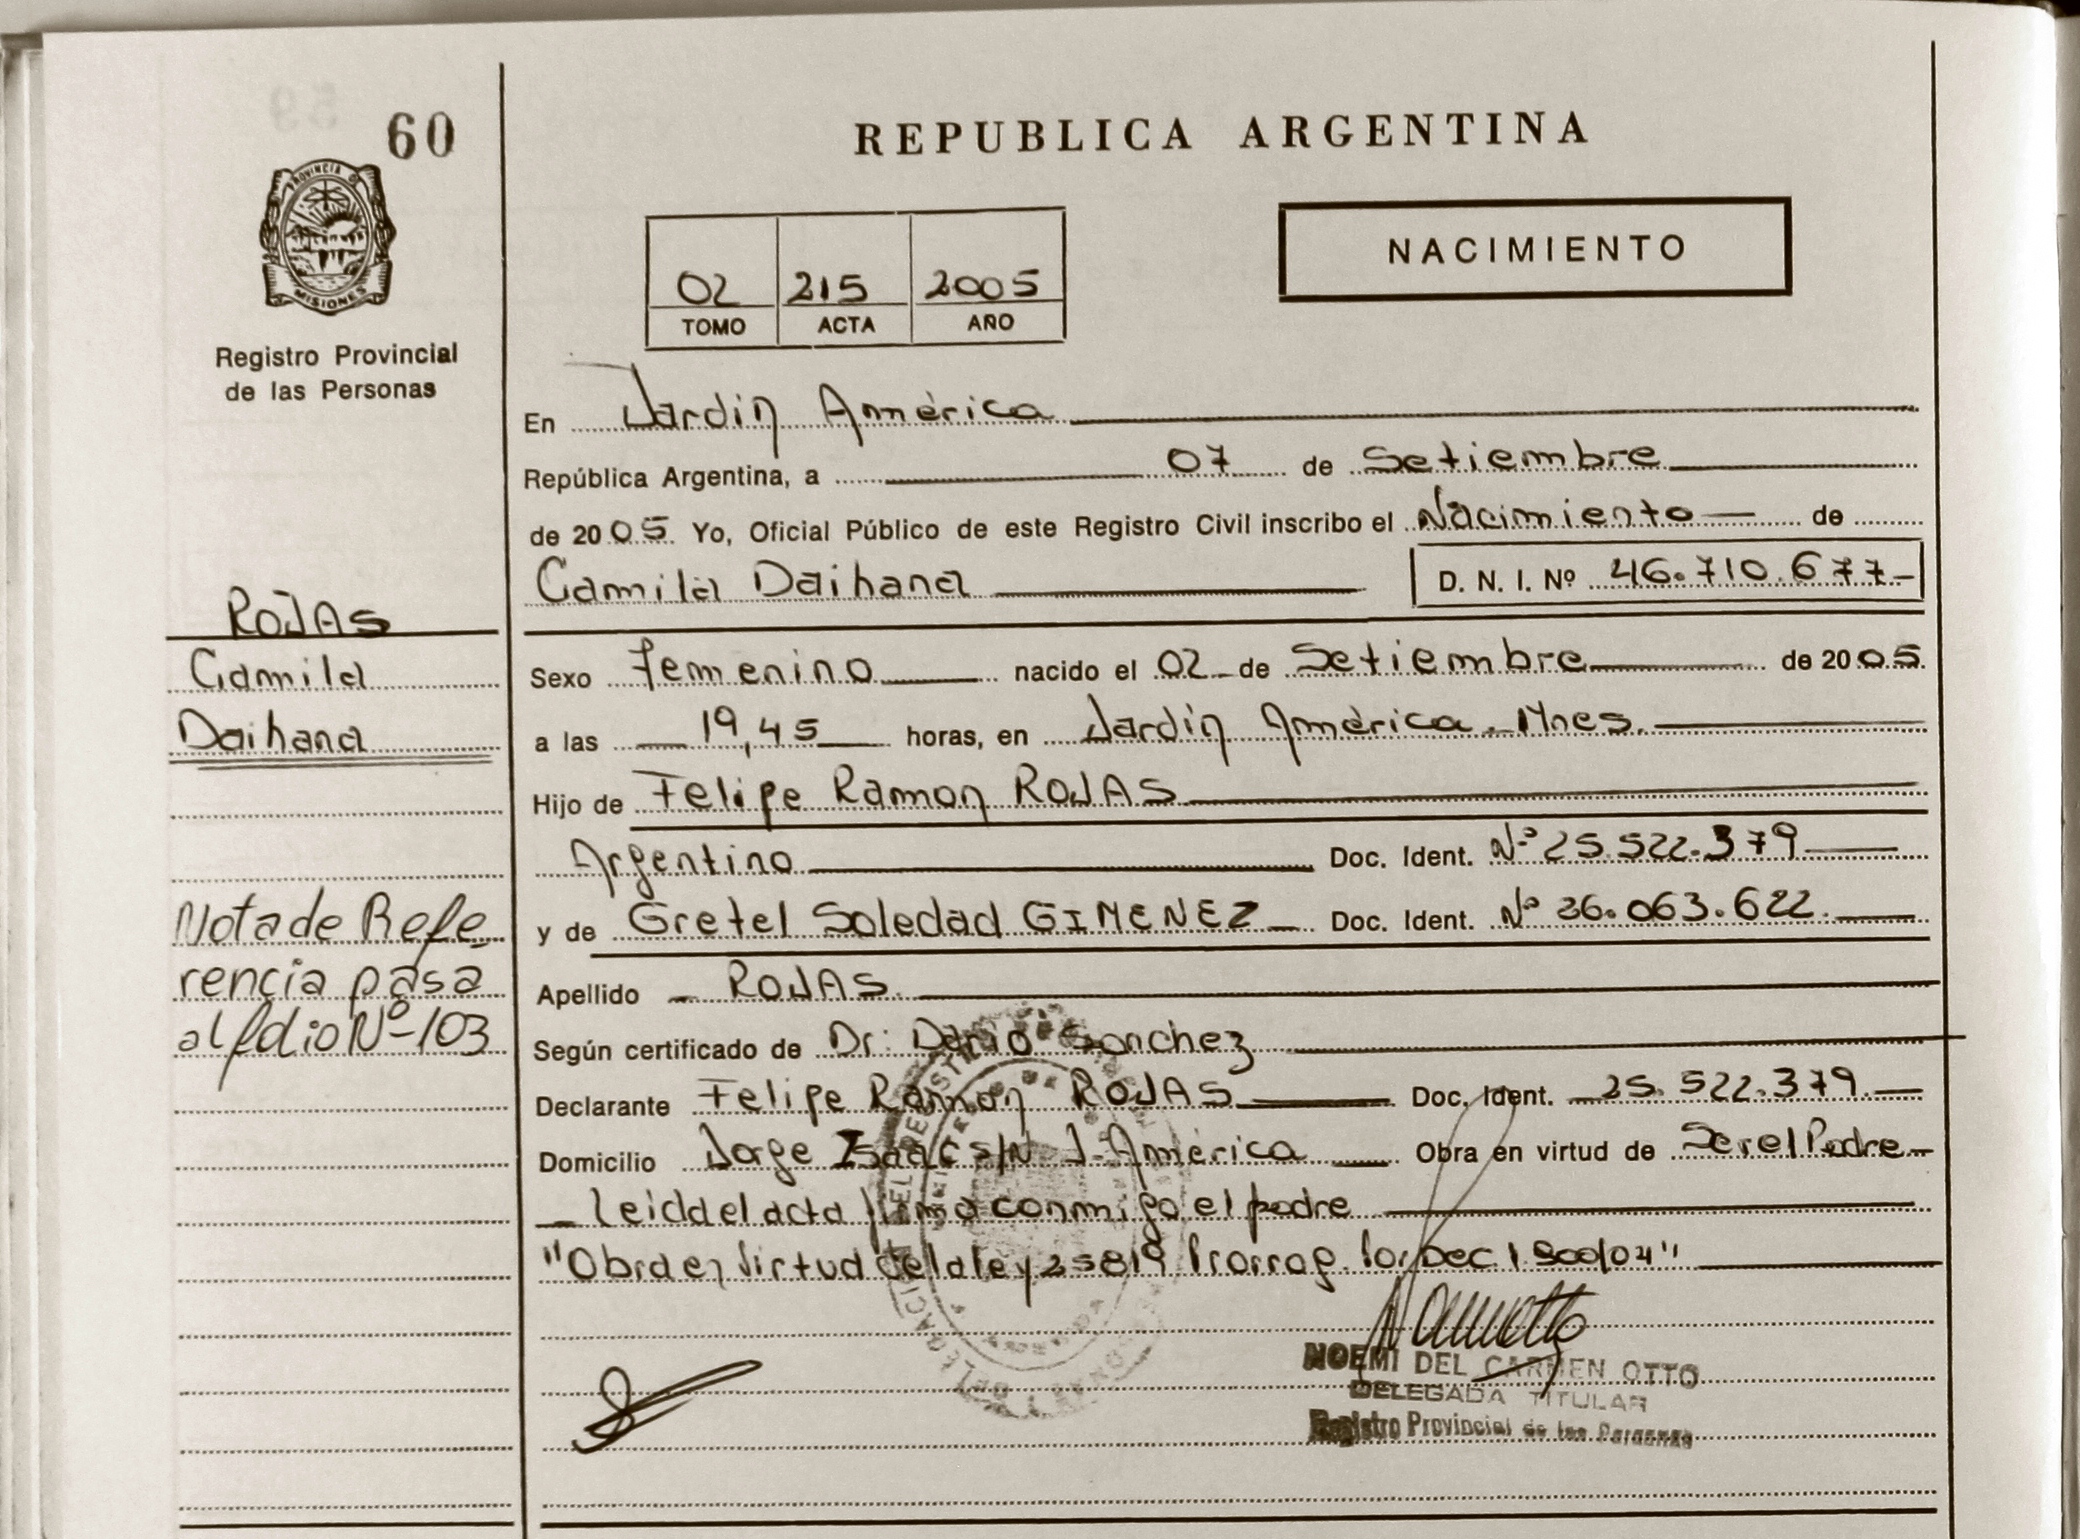 60
REPUBLICA ARGENTINA
PROVINCIA D
MISIONES
Registro Provincial
de las Personas
02 215 2005
TOMO ACTA AÑO
NACIMIENTO
En Jardín América
República Argentina, a 07 de Setiembre
de 2005 Yo, Oficial Público de este Registro Civil inscribo el Nacimiento de
Camila Daihana D. N. I. Nº 46.710.677
ROJAS
Camila
Daihana
Sexo Femenino nacido el 02 de Setiembre de 2005
a las 19,45 horas, en Jardín América - Mnes.
Hijo de Felipe Ramon ROJAS
Argentino Doc. Ident. Nº 25.522.379
y de Gretel Soledad GIMENEZ Doc. Ident. Nº 36.063.622
Nota de Refe
rencia pasa
al folio Nº-103
Apellido ROJAS
Según certificado de Dr: Dario Sanchez
Declarante Felipe Ramon ROJAS Doc. Ident. 25.522.379
Domicilio Jorge Isaac S/N J. América Obra en virtud de Ser el Padre
Leida el acta firma conmigo el padre
"Obra en Virtud de la ley 25819 Prorrog. por Dec 1.900/04"
NOEMI DEL CARMEN OTTO
DELEGADA TITULAR
Registro Provincial de las Personas